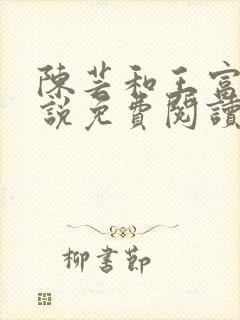 陳芸和王富
說免費閱讀
柳書節